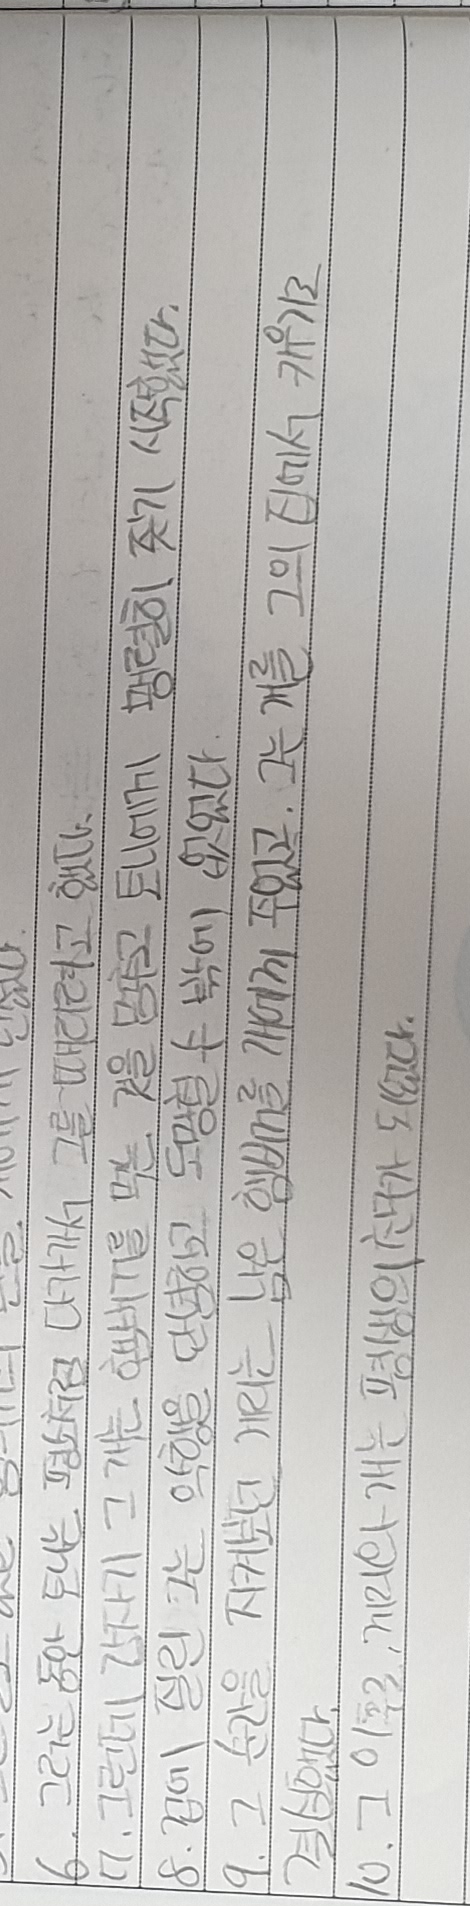 6. 그러는 동안 토니는 평소처럼 다가가서 그를 때리려고 했다.
7. 그런데 갑자기 그 개는 햄버거를 먹는 것을 멈추고 토니에게 맹렬히 짖기 시작했다.
8. 겁에 질린 그는 악행을 단념하고 도망칠 수 밖에 없었다.
9. 그 순간을 지켜보던 게리는 남은 햄버거를 개에게 주었고. 그는 개를 그의 집에서 키우기로
결심했다.
10. 그 이후로, 게리와 개는 평생의 친구가 되었다.